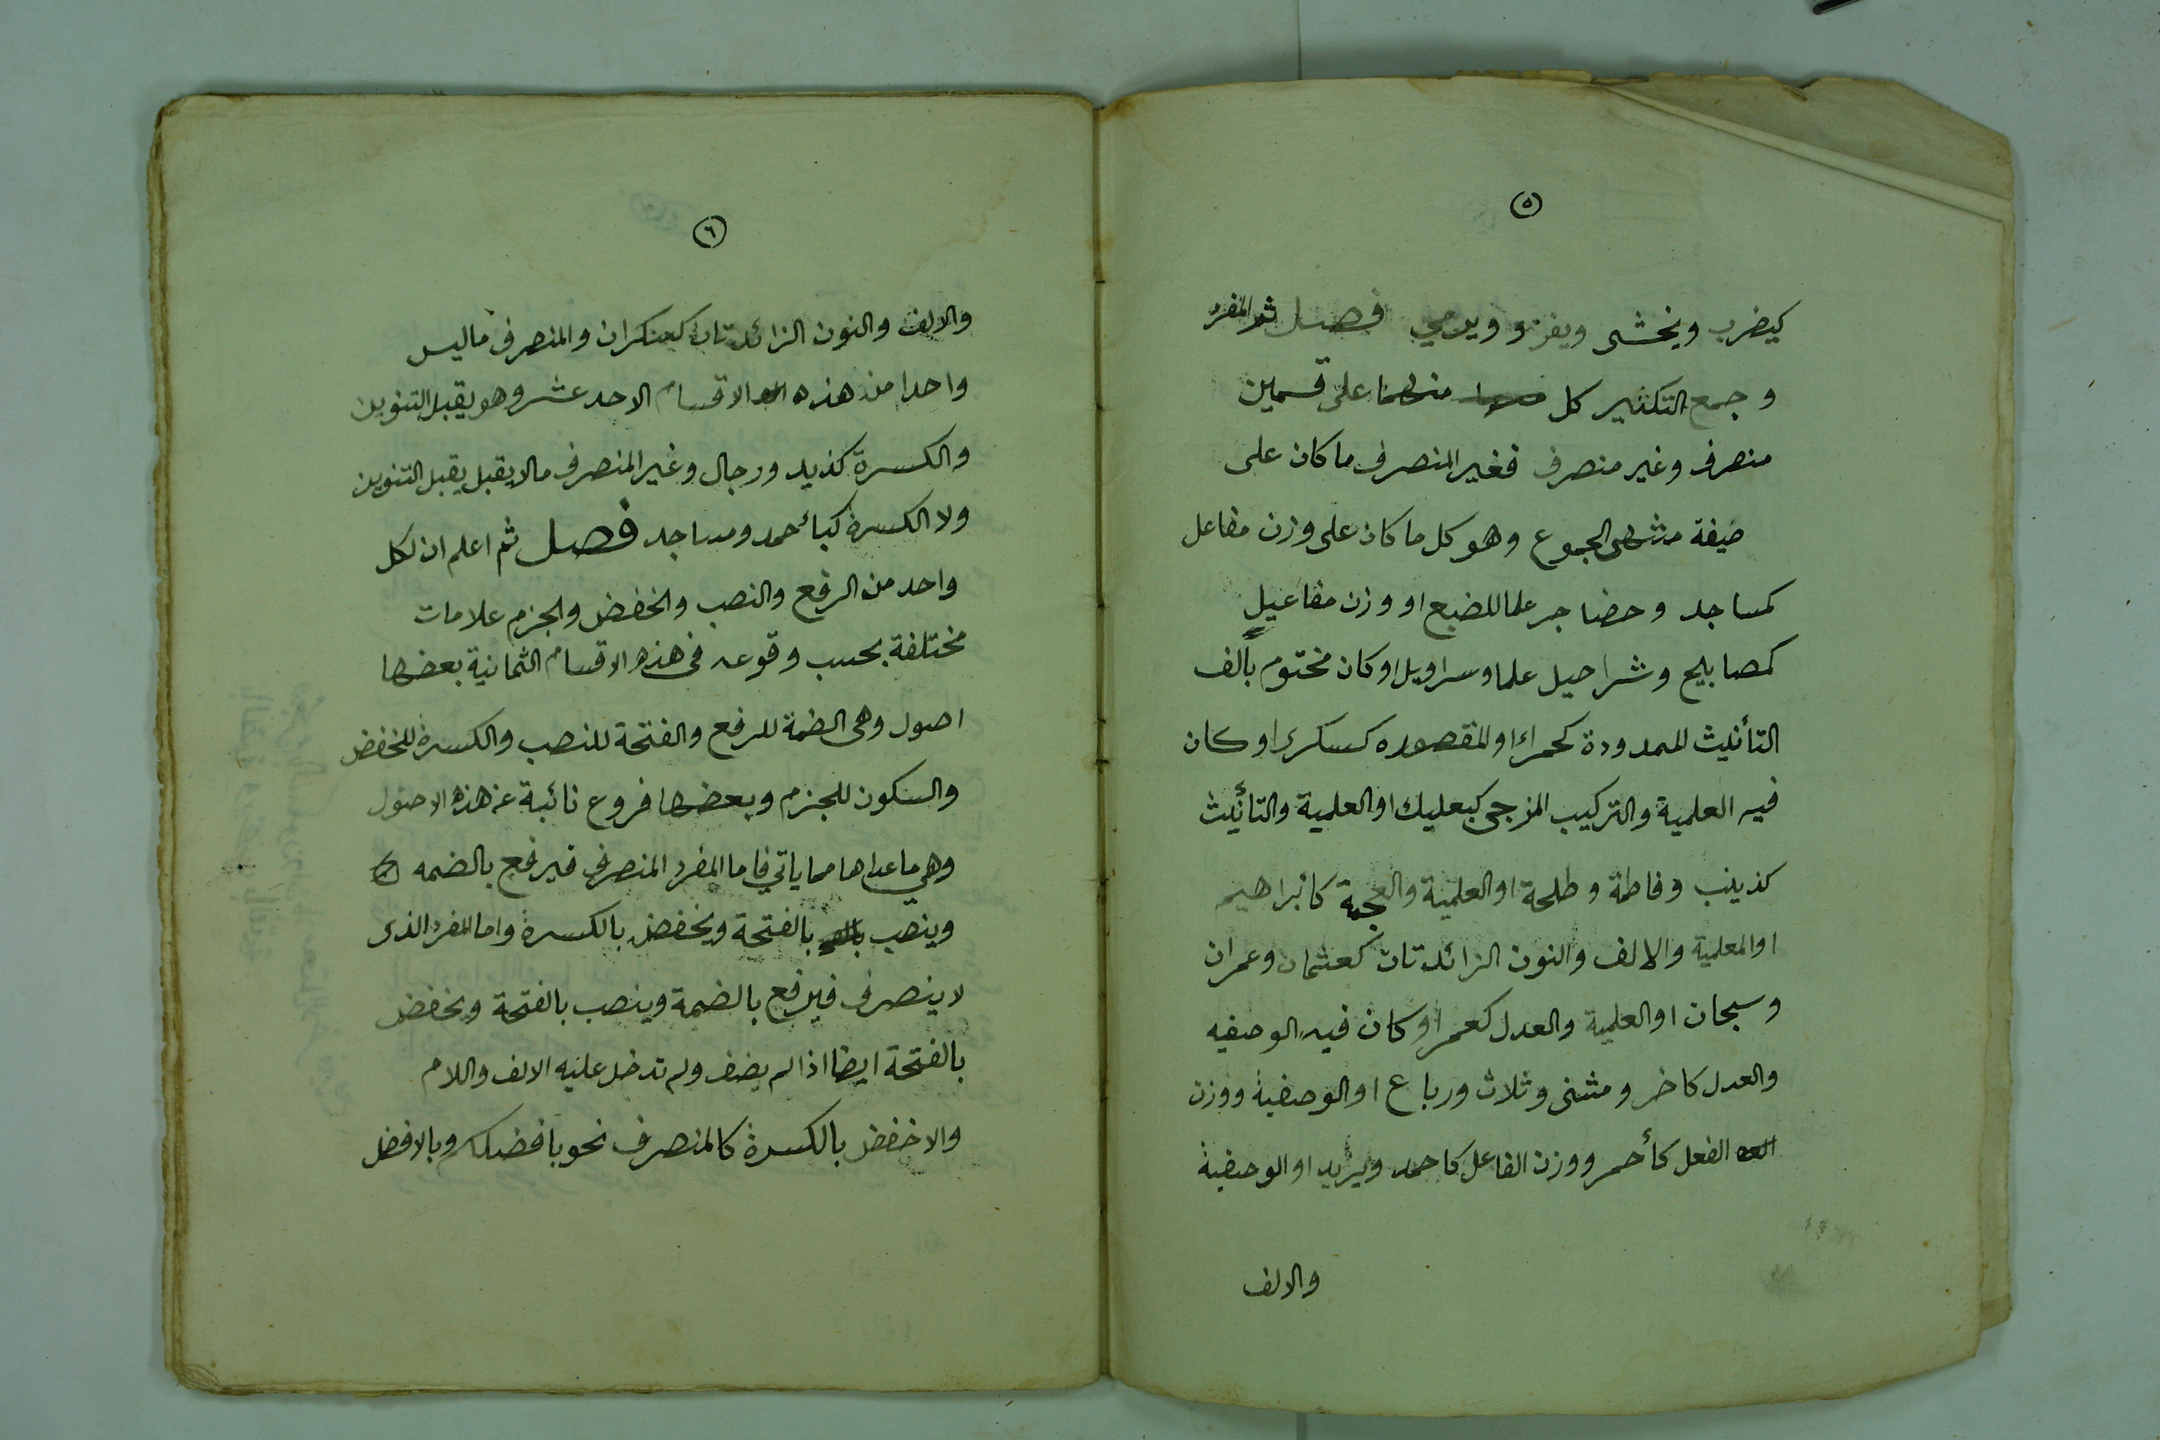 ٥
كيضرب ويخشى ويغزو ويرمي فصل ثم المفرد
وجمع التكثير كل منهما على قسمين
منصرف وغير منصرف فغير المنصرف ما كان على
ضيفة منتهى الجموع وهو كل ما كان على وزن مفاعل
كمساجد وحضاجر علما للضبع او وزن مفاعيل
كمصابيح وشراحيل علما وسراويل او كان مختوم بالف
التأنيث الممدودة كحمراء او المقصوره كسكرى او كان
فيه العلمية والتركيب المزجى كبعلبك او العلمية والتأنيث
كذينب وفاطمة وطلحة او العلمية والعجمة كابراهيم
او المعلمية والالف والنون الزائدتان كعثمان وعمران
وسبحان او العلمية والعدل كعمر او كان فيه الوصفيه
والعدل كاخر ومثنى وثلاث ورباع او الوصفية ووزن
الفعل كأحمر ووزن الفاعل كاحمد ويزيد او الوصفية
والالف
٦
والالف والنون الزائدتان كسكران والمنصرف ما ليس
واحدا من هذه الاقسام الاحد عشر وهو يقبل التنوين
والكسرة كذيد ورجال وغير المنصرف مالا يقبل يقبل التنوين
ولا الكسرة كبأحمد ومساجد فصل ثم اعلم ان لكل
واحد من الرفع والنصب والخفض والجزم علامات
مختلفة بحسب وقوعه فى هذه الاقسام الثمانية بعضها
اصول وهى الضمة للرفع والفتحة للنصب والكسرة للخفض
والسكون للجزم وبعضها فروع نائبة عن هذه الاصول
وهي ما عداها مما ياتي فاما المفرد المنصرف فيرفع بالضمه
وينصب بالفتحة ويخفض بالكسرة واما المفرد الذى
لا ينصرف فيرفع بالضمة وينصب بالفتحة ويخفض
بالفتحة ايضا اذا لم يضف ولم تدخل عليه الالف واللام
والا خفض بالكسرة كالمنصرف نحو بافضلكم وبالافضل